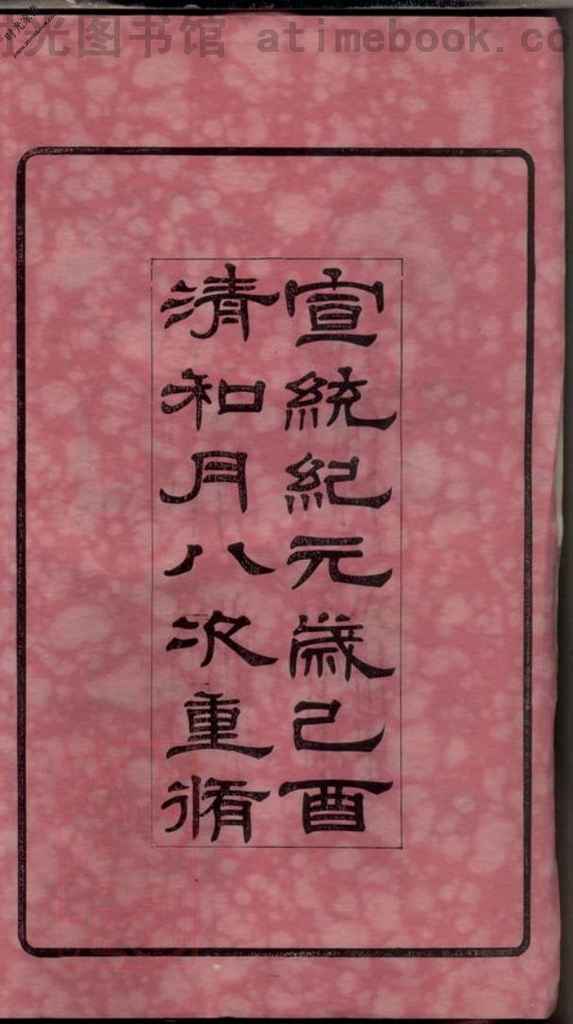 时光图书馆 atimebook.co
宣統紀元歲己酉
清和月八次重脩